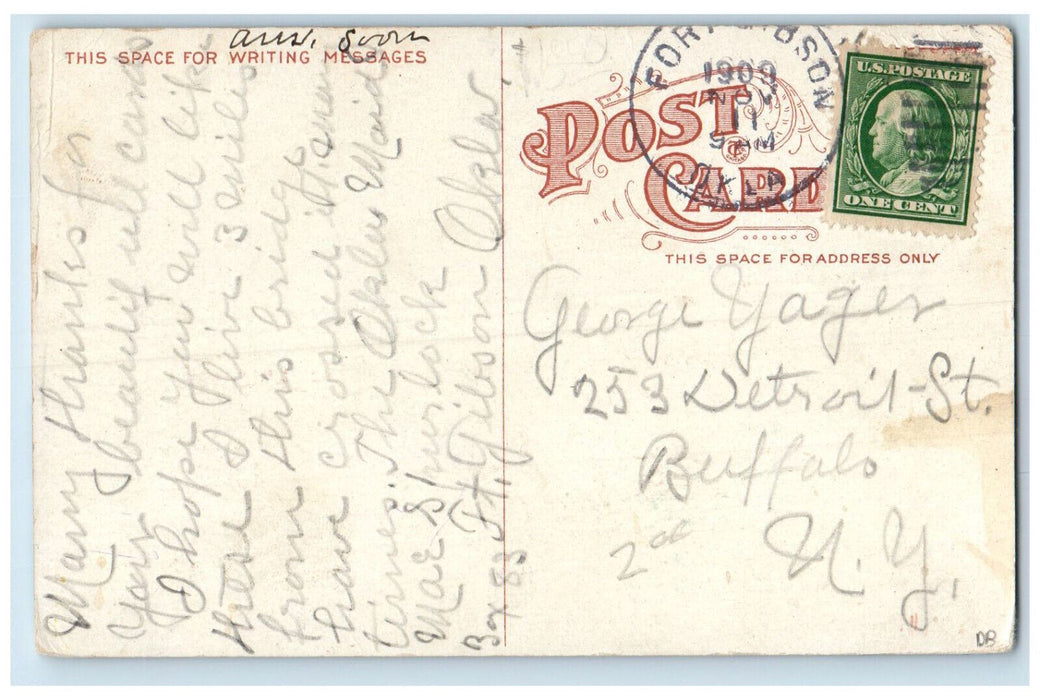 THIS SPACE FOR WRITING MESSAGES
ans. soon
Many thanks for
your beautiful card
I hope you will like
these I live 3 miles
from this bridge
have crossed it many
times. The Okla. Maid
Mae Spurlock
Box 83 Ft. Gibson Okla
POST CARD
FORT GIBSON
1909
NOV
11
9 AM
OKLA
U.S. POSTAGE
ONE CENT
THIS SPACE FOR ADDRESS ONLY
George Yager
253 Detroit St.
Buffalo
N. Y.
2cc
DB